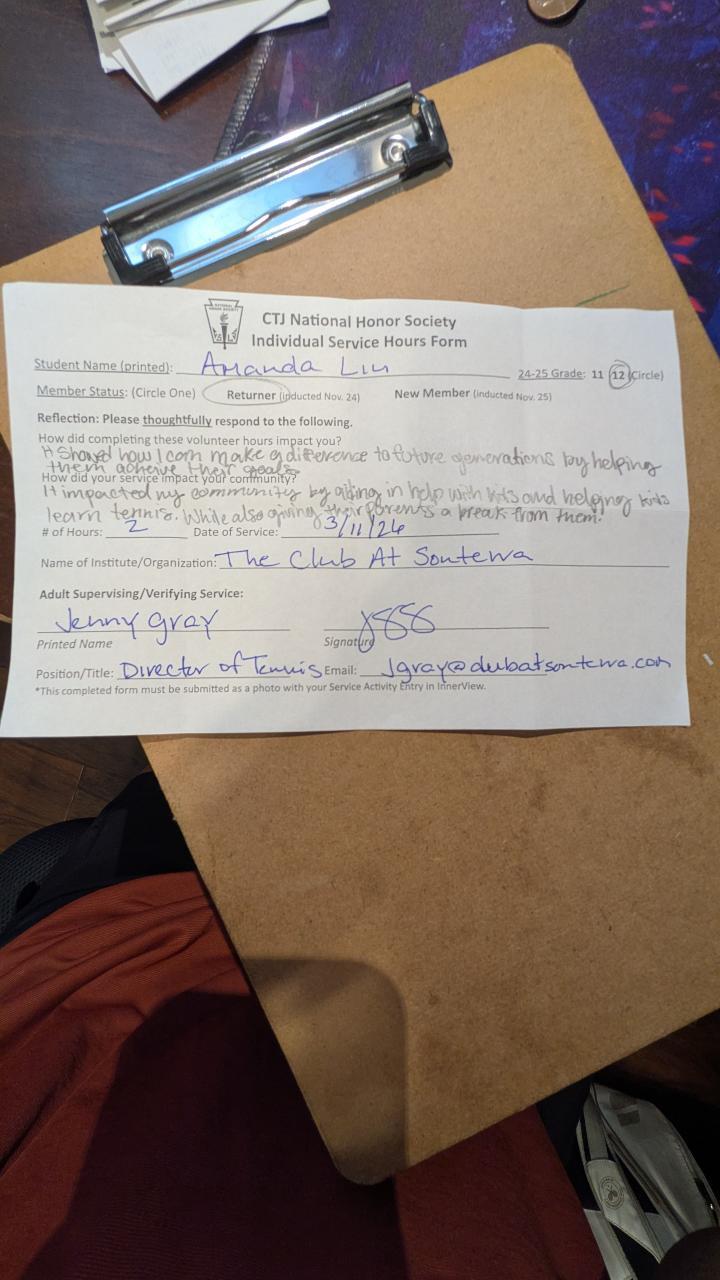 CTJ National Honor Society
Individual Service Hours Form
Student Name (printed): Amanda Liu 24-25 Grade: 11 12 (Circle)
Member Status: (Circle One) Returner (inducted Nov. 24) New Member (inducted Nov. 25)
Reflection: Please thoughtfully respond to the following.
How did completing these volunteer hours impact you?
It showed how I can make a difference to future generations by helping
them achieve their goals
How did your service impact your community?
It impacted my community by aiding in help with kids and helping kids
learn tennis. While also giving their parents a break from them.
# of Hours: 2 Date of Service: 3/11/26
Name of Institute/Organization: The Club At Sonterra
Adult Supervising/Verifying Service:
Jenny Gray
Printed Name Signature
Position/Title: Director of Tennis Email: Jgray@clubatsonterra.com
*This completed form must be submitted as a photo with your Service Activity Entry in InnerView.